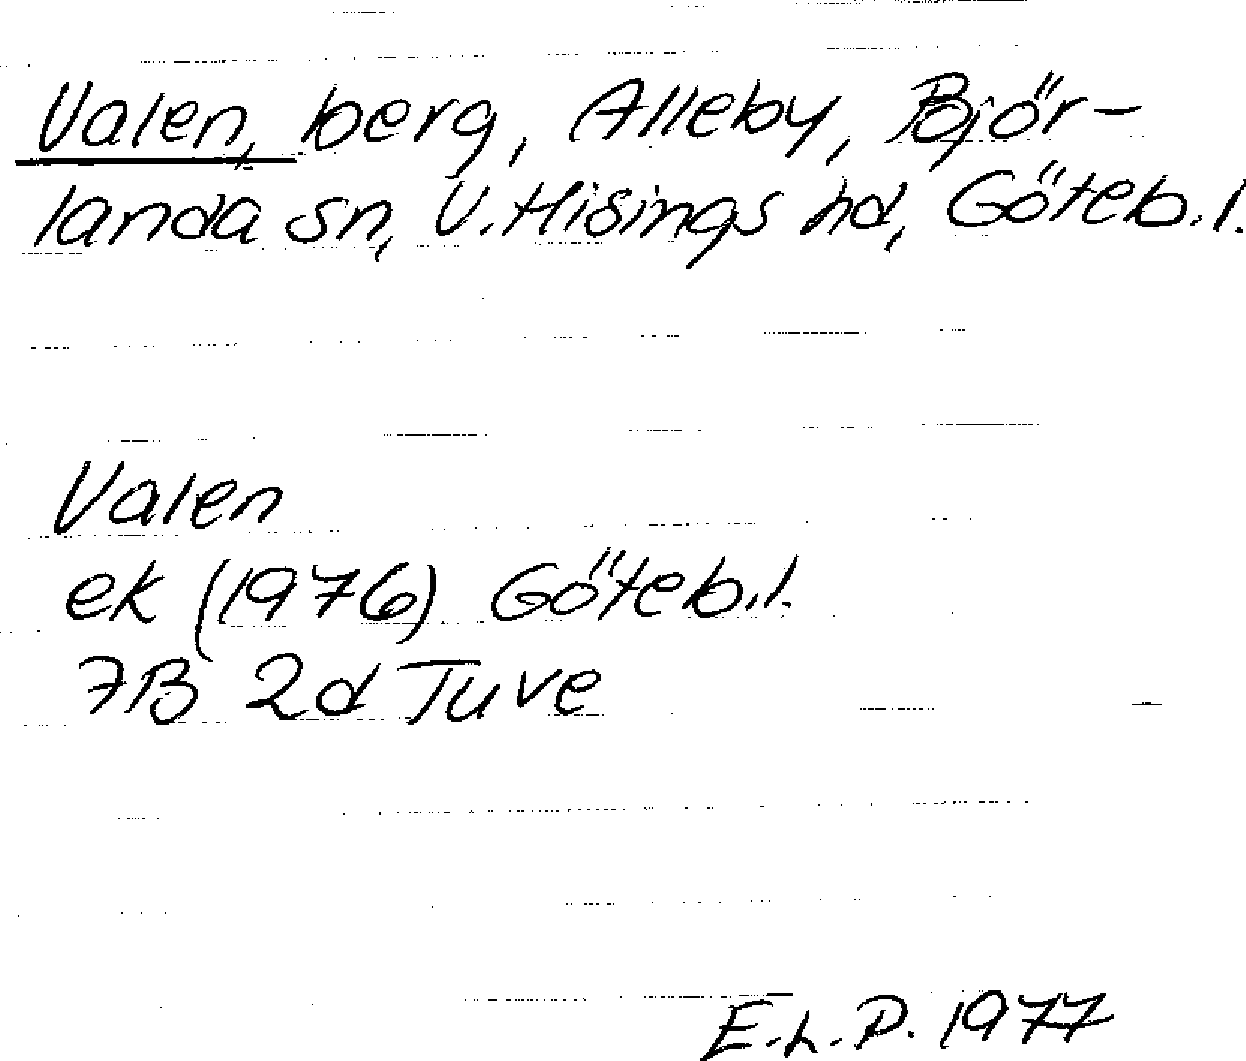 Valen, berg, Alleby, Björ-
landa sn, V. Hisings hd, Göteb. l.
Valen
ek (1976) Göteb. l.
7B 2d Tuve
E.L.P. 1977